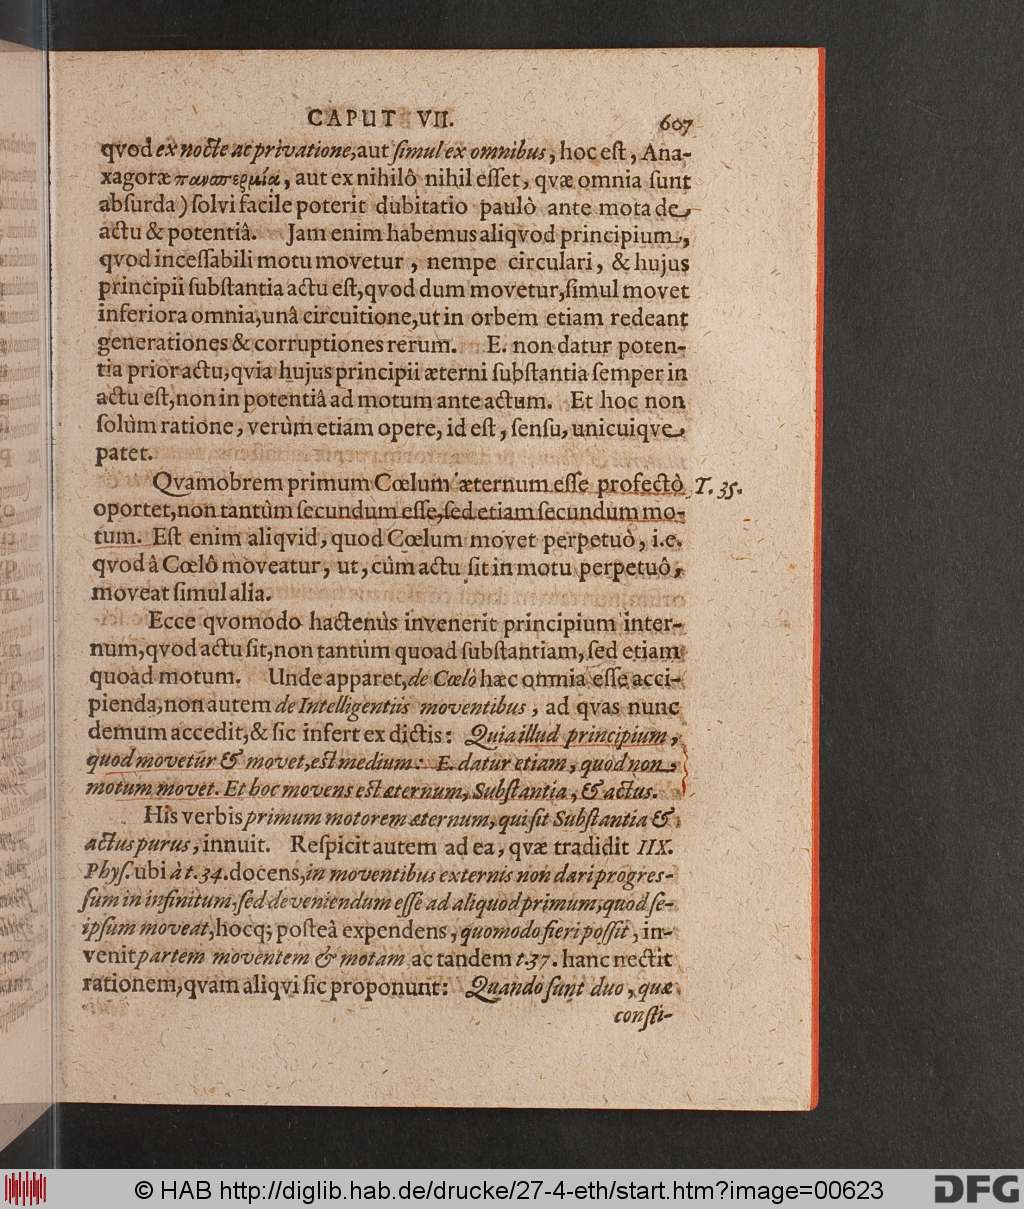 CAPUT VII. 607
qvod ex nocte ac privatione, aut ſimul ex omnibus, hoc eſt, Ana-
xagoræ πανσπερμία, aut ex nihilô nihil eſſet, qvæ omnia ſunt
abſurda) ſolvi facile poterit dubitatio paulò ante mota de
actu & potentiâ. Jam enim habemus aliqvod principium,
qvod inceſſabili motu movetur, nempe circulari, & hujus
principii ſubſtantia actu eſt, qvod dum movetur, ſimul movet
inferiora omnia, unâ circuitione, ut in orbem etiam redeant
generationes & corruptiones rerum. E. non datur poten-
tia prior actu, qvia hujus principii æterni ſubſtantia ſemper in
actu eſt, non in potentiâ ad motum ante actum. Et hoc non
ſolùm ratione, verùm etiam opere, id eſt, ſenſu, unicuiqve
patet.
Qvamobrem primum Cœlum æternum eſſe profectò T. 35.
oportet, non tantùm ſecundum eſſe, ſed etiam ſecundum mo-
tum. Eſt enim aliqvid, quod Cœlum movet perpetuò, i.e.
qvod â Cœlô moveatur, ut, cùm actu ſit in motu perpetuô,
moveat ſimul alia.
Ecce qvomodo hactenùs invenerit principium inter-
num, qvod actu ſit, non tantùm quoad ſubſtantiam, ſed etiam
quoad motum. Unde apparet, de Cœlo hæc omnia eſſe acci-
pienda, non autem de Intelligentiis moventibus, ad qvas nunc
demum accedit, & ſic infert ex dictis: Quia illud principium,
quod movetur & movet, eſt medium: E. datur etiam, quod non
motum movet. Et hoc movens eſt æternum, Subſtantia, & actus.
His verbis primum motorem æternum, qui ſit Subſtantia &
actus purus, innuit. Reſpicit autem ad ea, qvæ tradidit IIX.
Phyſ. ubi à t. 34. docens, in moventibus externis non dari progreſ-
ſum in infinitum, ſed deveniendum eſſe ad aliquod primum, quod ſe-
ipſum moveat, hocq; poſteà expendens, quomodo fieri poſſit, in-
venit partem moventem & motam ac tandem t. 37. hanc nectit
rationem, qvam aliqvi ſic proponunt: Quando ſunt duo, quæ
conſti-
© HAB http://diglib.hab.de/drucke/27-4-eth/start.htm?image=00623
DFG